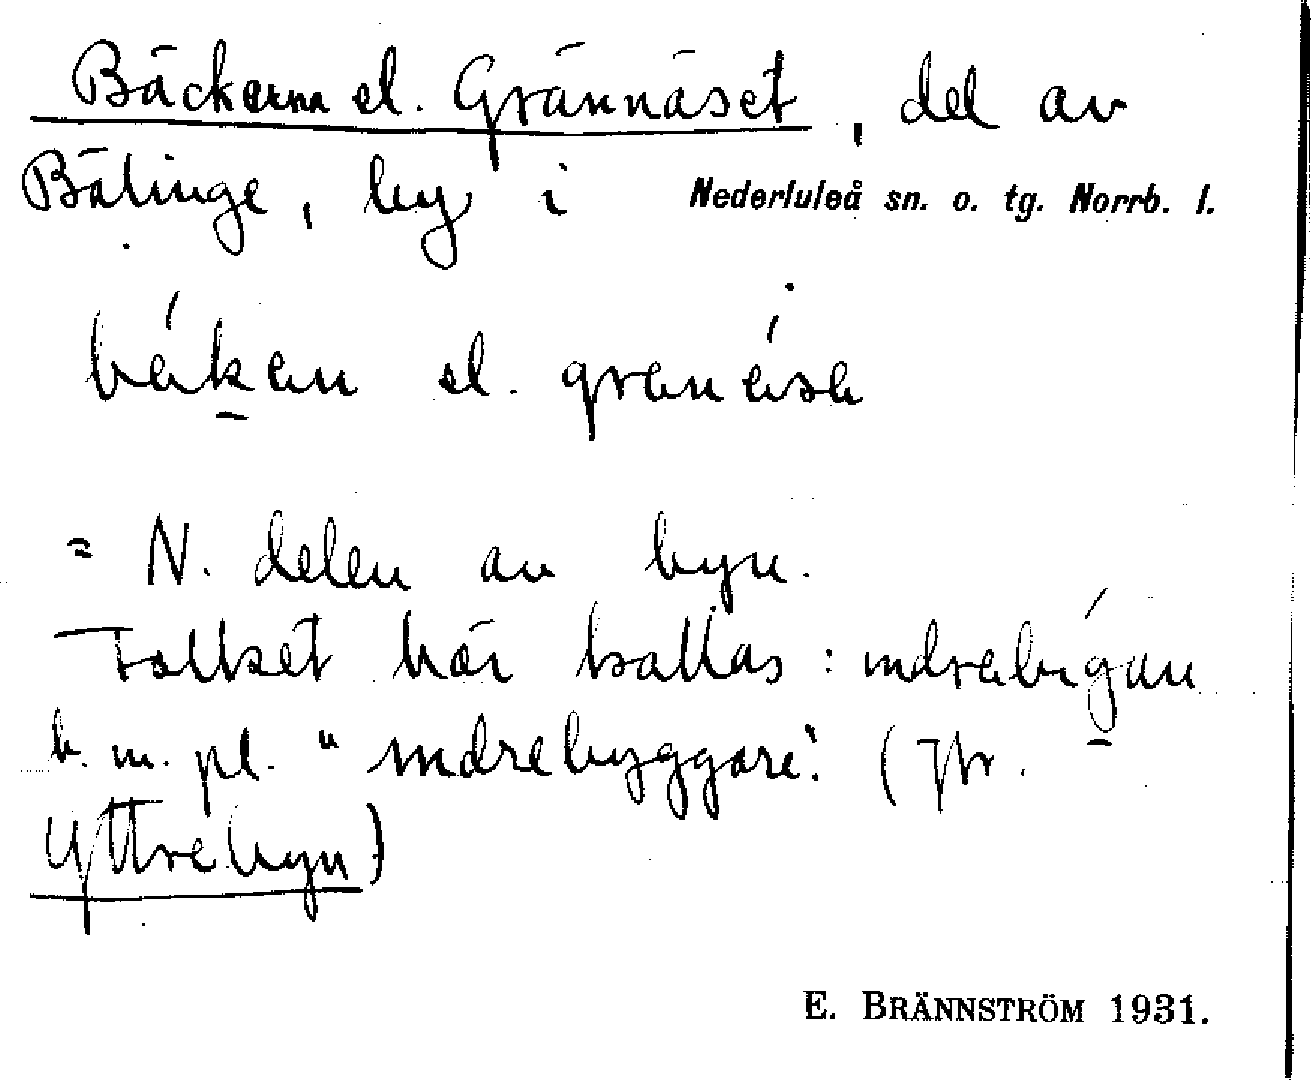 Bäckerna el. Grännäset, del av
Bälinge, by i Nederluleå sn. o. tg. Norrb. l.
el.
= N. delen av byn.
Folket här kallas: indrebýgan
b. m. pl. "indrebyggare". (Jfr.
Yttrebyn)
E. BRÄNNSTRÖM 1931.